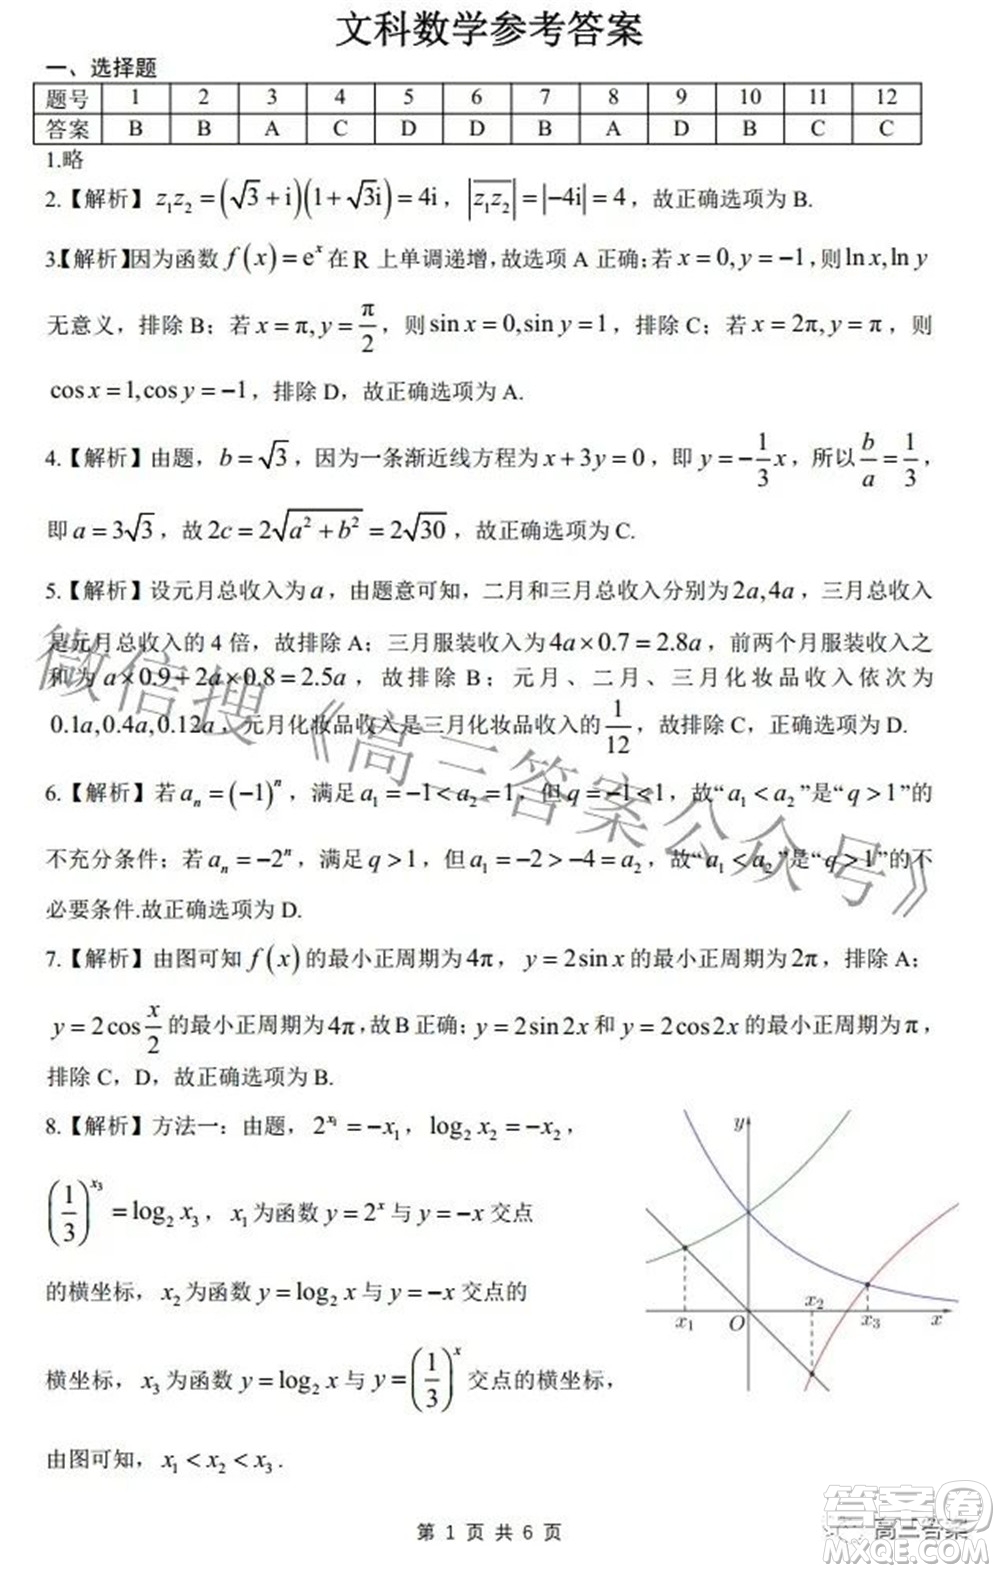 文科数学参考答案
一、选择题
题号 1 2 3 4 5 6 7 8 9 10 11 12
答案 B B A C D D B A D B C C
1.略
2.【解析】z₁z₂=(√3+i)(1+√3i)=4i，|z₁z₂|=|−4i|=4，故正确选项为 B.
3【解析】因为函数 f(x)=eˣ 在 R 上单调递增,故选项 A 正确；若 x=0,y=−1，则 ln x,ln y
无意义，排除 B；若 x=π,y=π/2，则 sin x=0,sin y=1，排除 C；若 x=2π,y=π，则
cos x=1,cos y=−1，排除 D，故正确选项为 A.
4.【解析】由题，b=√3，因为一条渐近线方程为 x+3y=0，即 y=−1/3x，所以 b/a=1/3，
即 a=3√3，故 2c=2√(a²+b²)=2√30，故正确选项为 C.
5.【解析】设元月总收入为 a，由题意可知，二月和三月总收入分别为 2a,4a，三月总收入
是元月总收入的 4 倍，故排除 A；三月服装收入为 4a×0.7=2.8a，前两个月服装收入之
和为 a×0.9+2a×0.8=2.5a，故排除 B；元月、二月、三月化妆品收入依次为
0.1a,0.4a,0.12a，元月化妆品收入是三月化妆品收入的 1/12，故排除 C，正确选项为 D.
6.【解析】若 aₙ=(−1)ⁿ，满足 a₁=−1<a₂=1，但 q=−1<1，故“a₁<a₂”是“q>1”的
不充分条件；若 aₙ=−2ⁿ，满足 q>1，但 a₁=−2>−4=a₂，故“a₁<a₂”是“q>1”的不
必要条件.故正确选项为 D.
7.【解析】由图可知 f(x) 的最小正周期为 4π，y=2sin x 的最小正周期为 2π，排除 A；
y=2cos x/2 的最小正周期为 4π，故 B 正确；y=2sin2x 和 y=2cos2x 的最小正周期为 π，
排除 C，D，故正确选项为 B.
8.【解析】方法一：由题，2^x₁=−x₁，log₂x₂=−x₂，
(1/3)^x₃=log₂x₃，x₁为函数 y=2ˣ 与 y=−x 交点
的横坐标，x₂为函数 y=log₂x 与 y=−x 交点的
横坐标，x₃为函数 y=log₂x 与 y=(1/3)ˣ 交点的横坐标，
由图可知，x₁<x₂<x₃.
y
x₂
x₁ O x₃ x
微信搜《高三答案公众号》
第 1 页 共 6 页
高三答案
答案卷
MXQE.COM